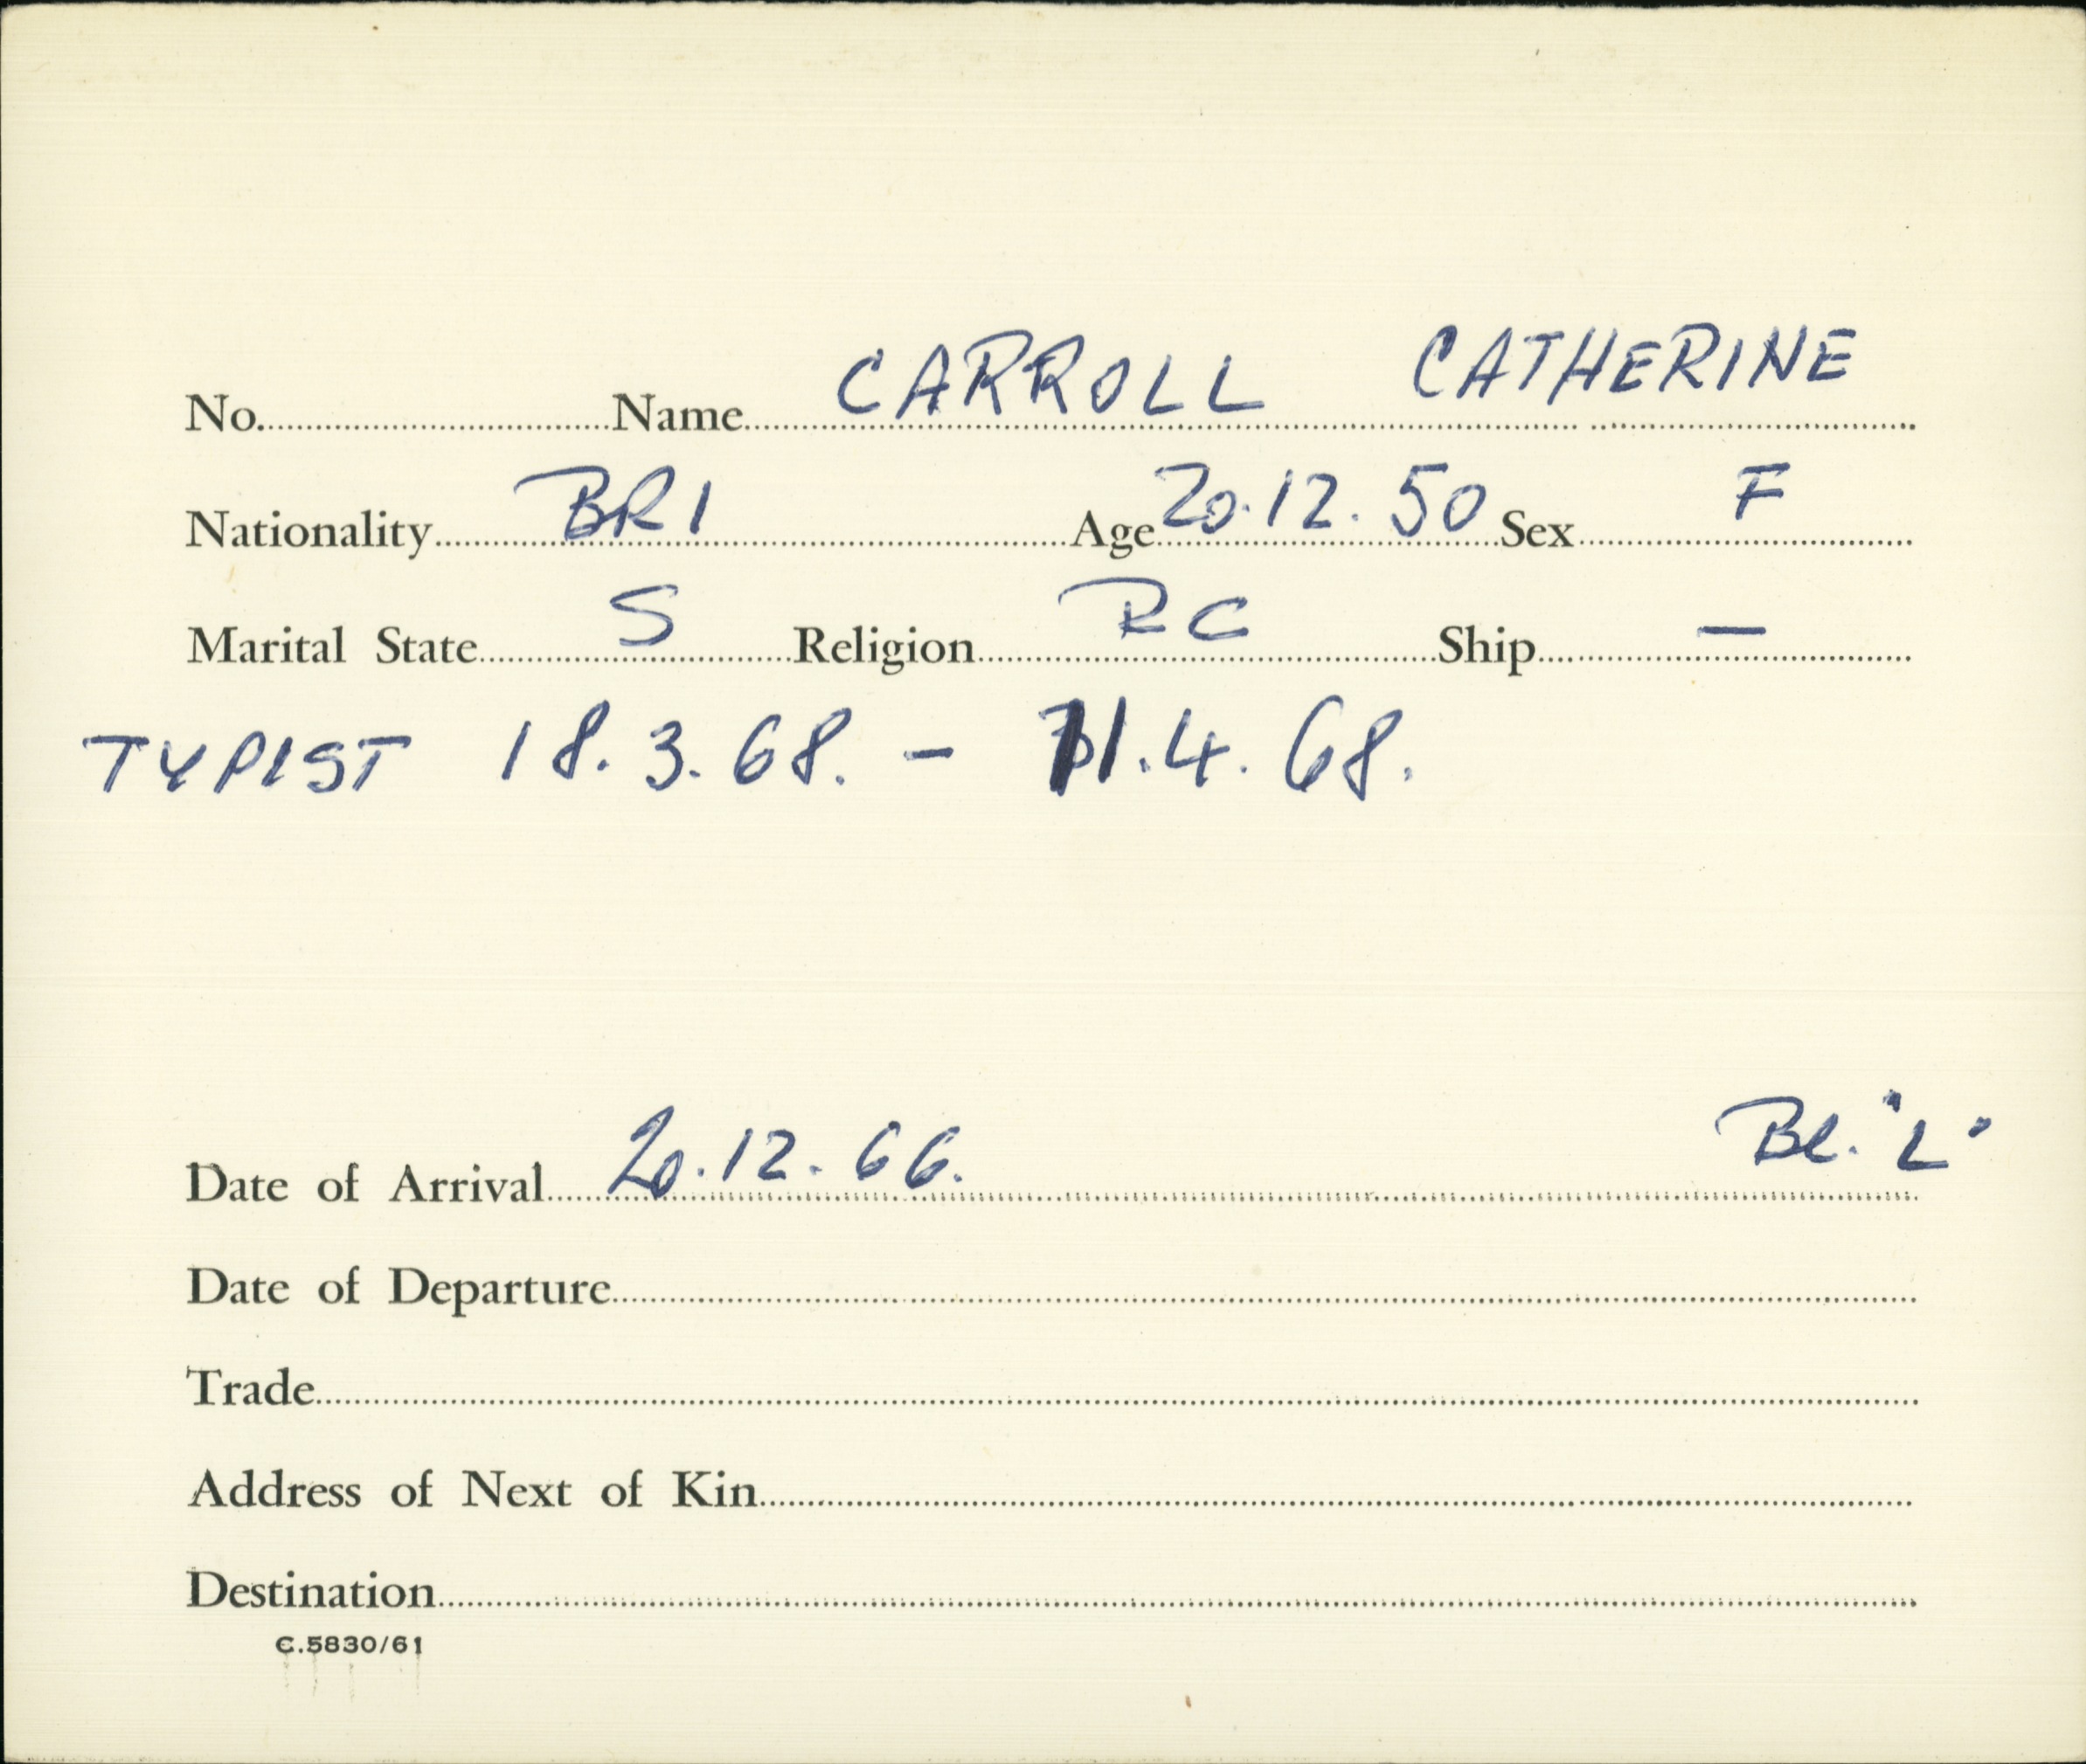 No. Name CARROLL CATHERINE
Nationality BRI Age 20.12.50 Sex F
Marital State S Religion RC Ship —
TYPIST 18.3.68. - 11.4.68.
Date of Arrival 20.12.66. Bl. "L"
Date of Departure
Trade
Address of Next of Kin
Destination
C.5830/61